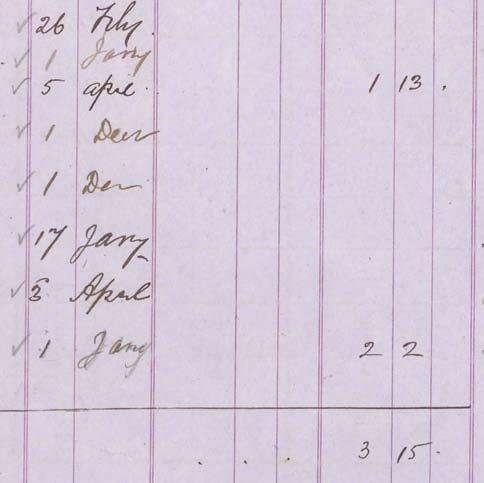 26 Feby.
1 Jany
5 april. 1 13 .
1 Decr
1 Der
17 Jany
3 April
1 Jany 2 2
. . . 3 15.